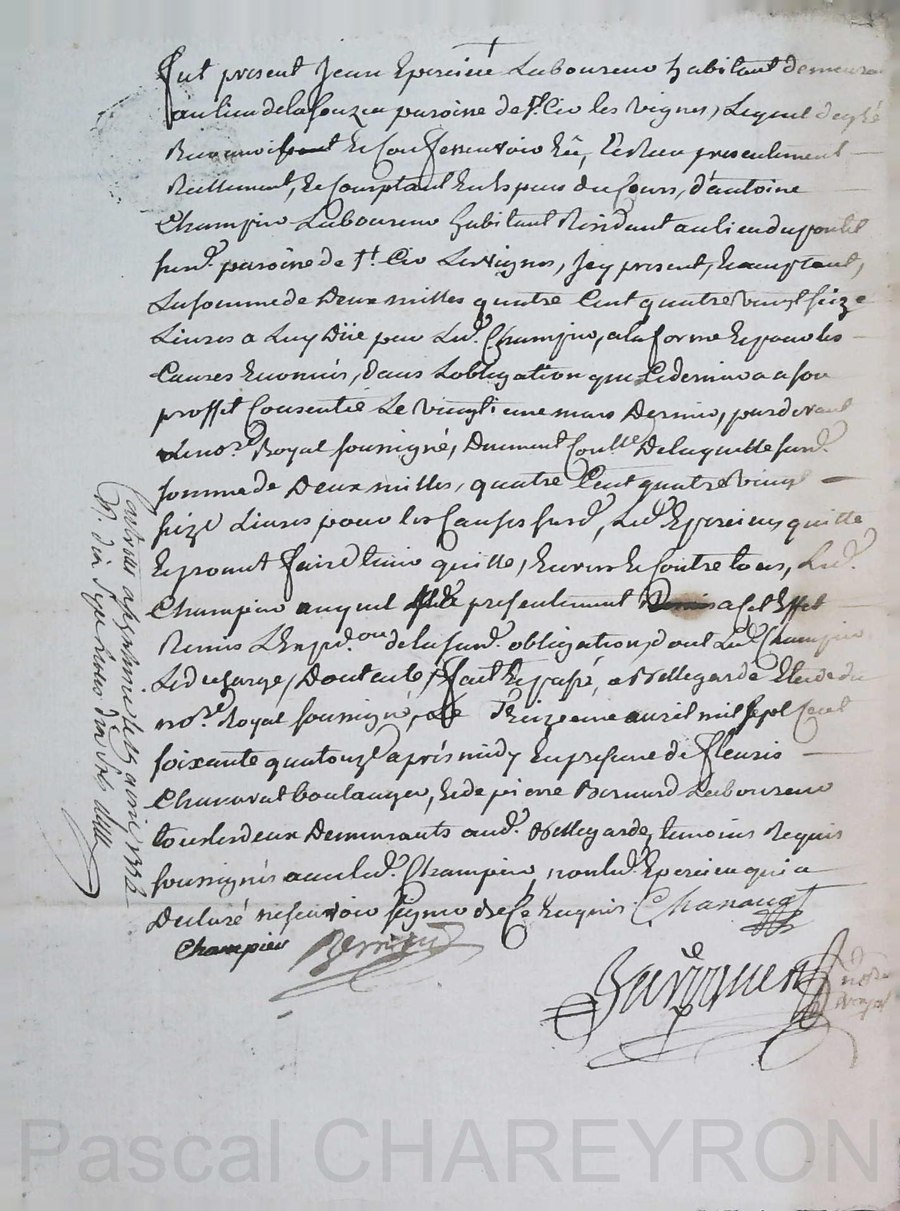 fut present Jean Epercieu Laboureur habitant demeurant
au lieu de la Souzea paroisse de St. Cir les vignes, Lequel de gré
a Reconnu et Confessé avoir Eü, et Receu presentement
Reellement, et Comptant En Especes du Cours, d'antoine
Champier Laboureur habitant Residant au lieu du pontet
surd. paroisse de St. Cir Les vignes, Icy present, acceptant,
La somme de Deux milles quatre Cent quatre vingt seize
Livres a Luy Düe par Led. Champier, a la forme et pour les
Causes Enoncées, dans L'obligation que Ledernier a a son
proffet Consentie Le vingt une mars Dernier, pardevant
Le nore. Royal soussigné, Duement Conttlée. De laquelle surd.
somme de Deux milles, quatre Cent quatre vingt
seize Livres pour les Causes surd. Led. Epercieu quitte
et promet faire tenir quitte, Envers et Contre tous, Led.
Champier auquel presentement a cet Effet
Remis L'Expdon. de la surd. obligation, dont Led. Champier
Le decharge, Dont acte, fait et passé, a Bellegarde Etude du
nore. Royal soussigné, Le Treizieme avril mil sept Cent
soixante quatorze après midy En presence de fleuris
Chanavat boulanger, et de pierre Bernard Laboureur
tous les deux Demeurants aud. Bellegarde, temoins Requis
soussignés avec led. Champier, non led. Epercieu qui a
Declaré ne savoir signer de Ce Enquis. Chanavat
Champier Bernard
nore
royal
Pascal CHAREYRON